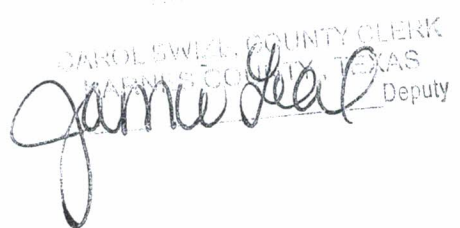 CAROL SWIZE, COUNTY CLERK
KARNES COUNTY, TEXAS
Jamie Leal Deputy